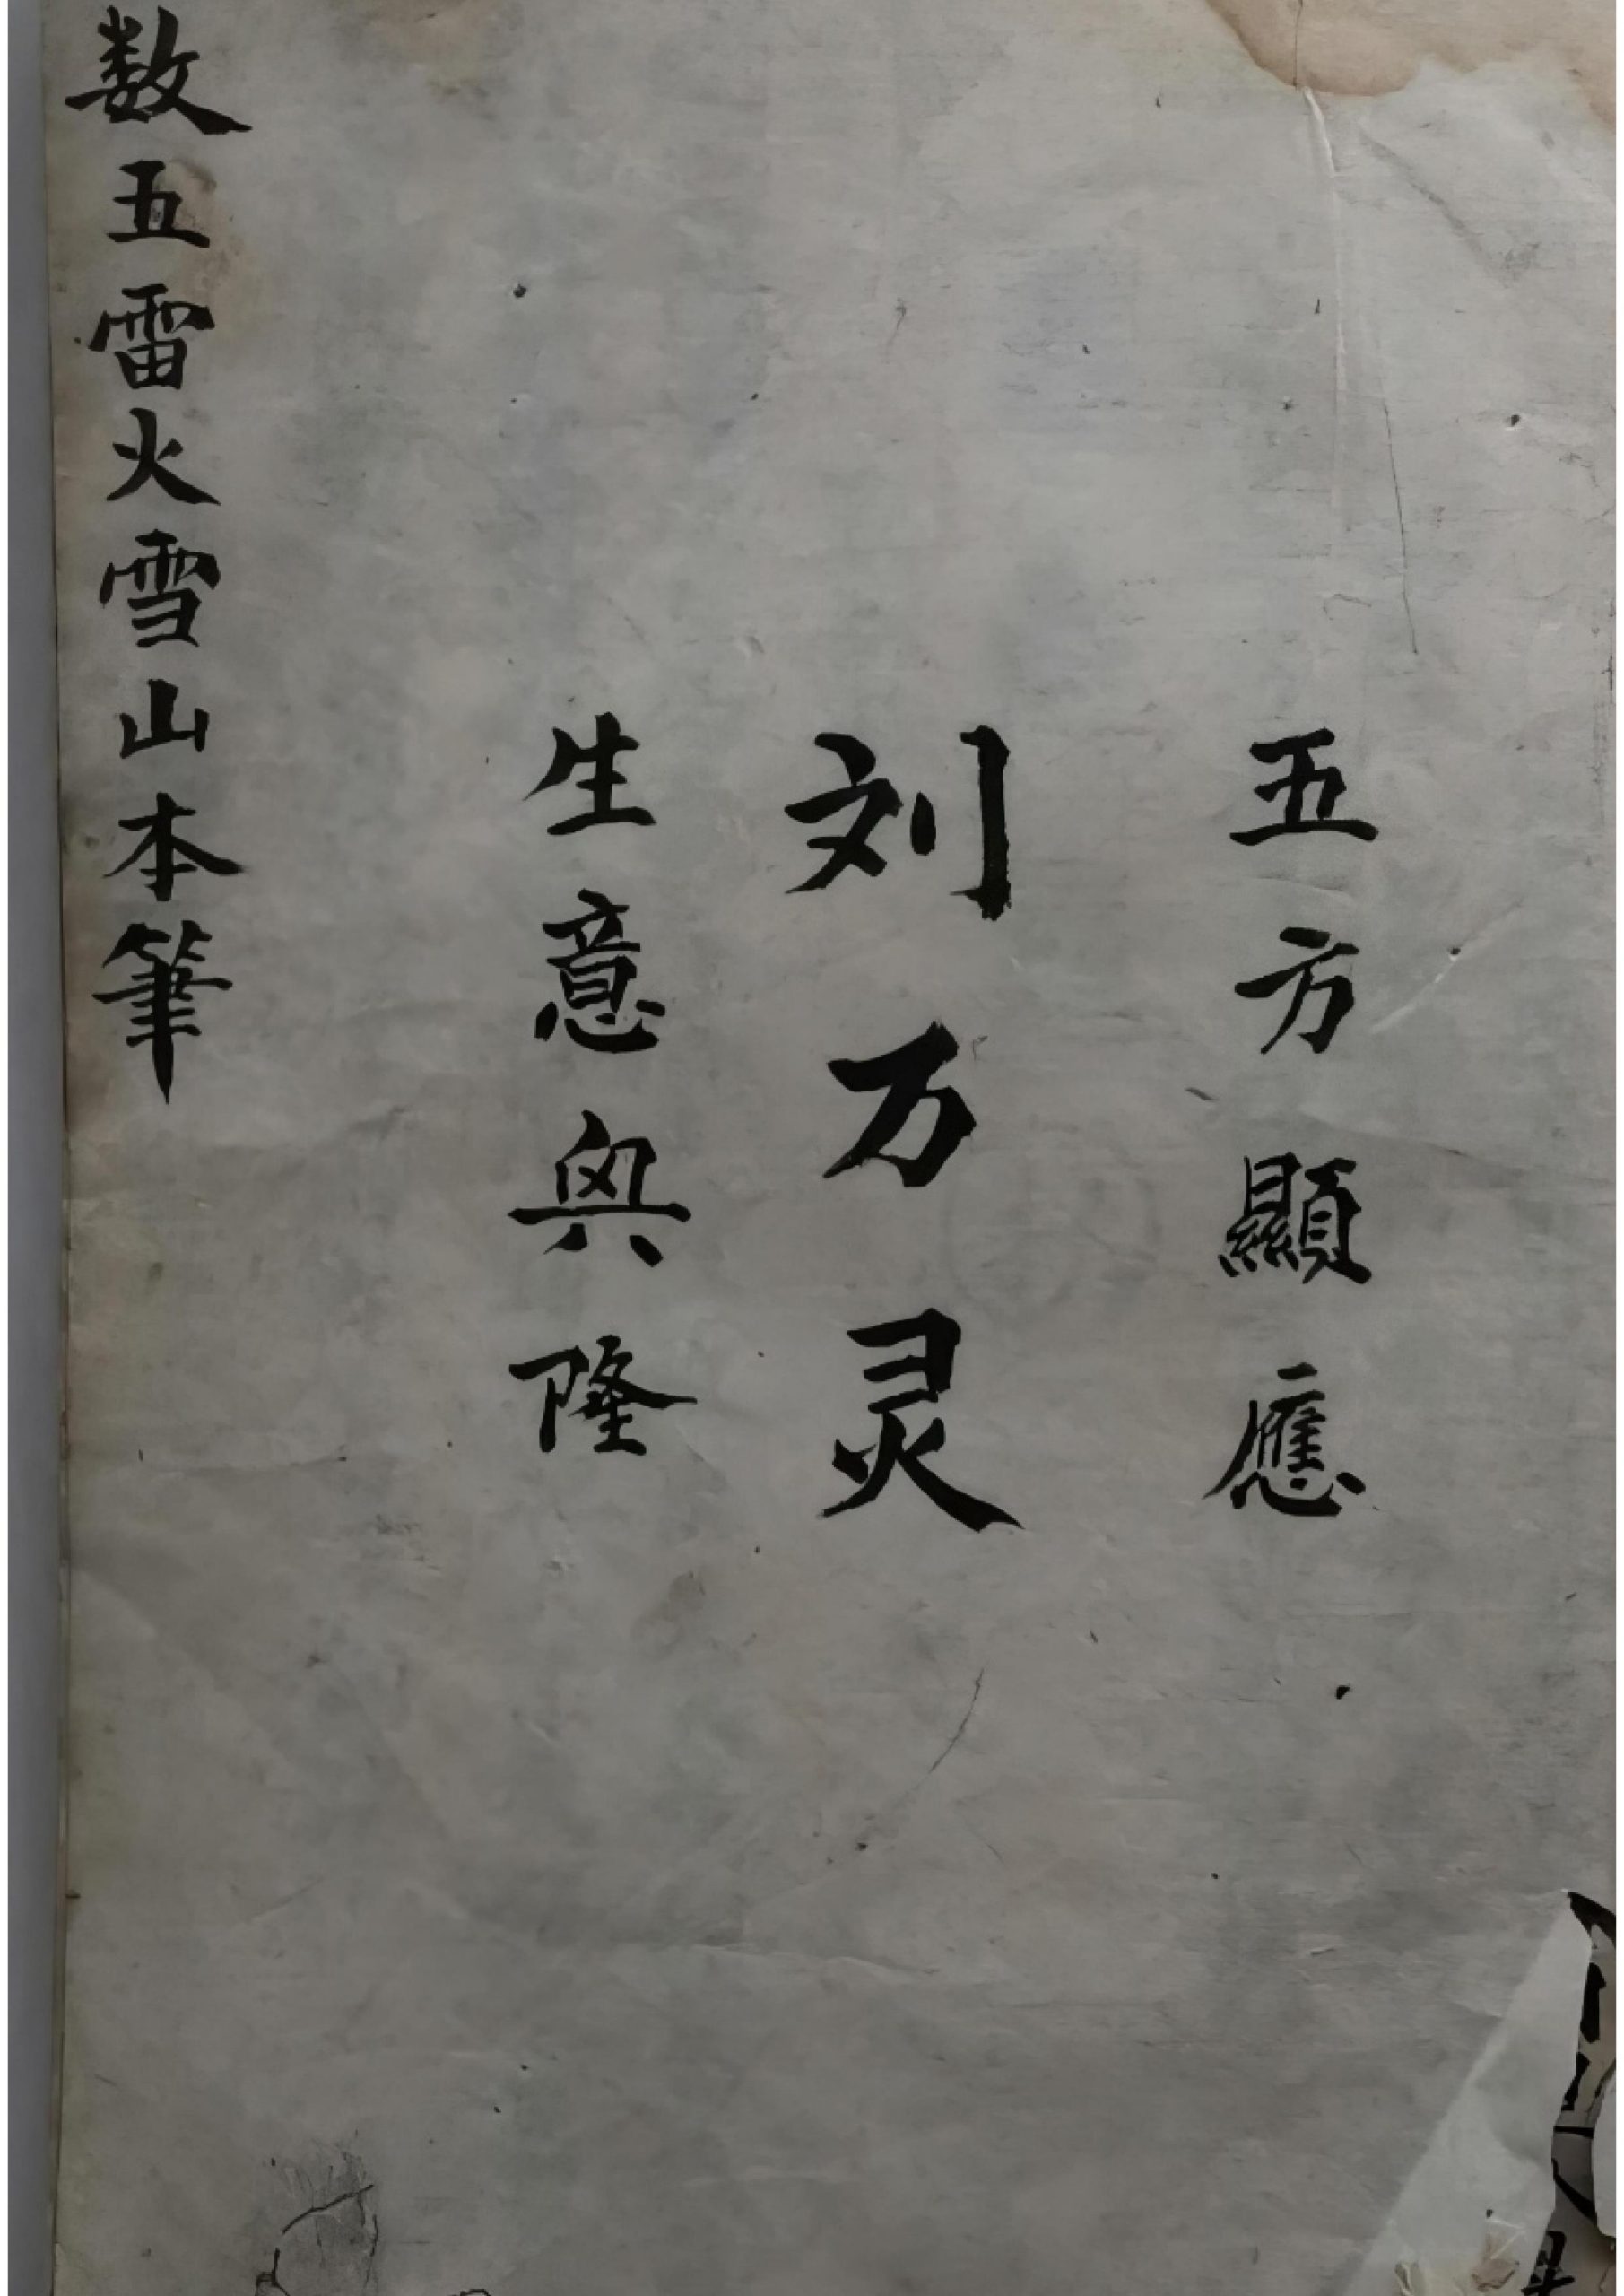 五方顯應
刘万灵
生意兴隆
数五雷火雪山本筆